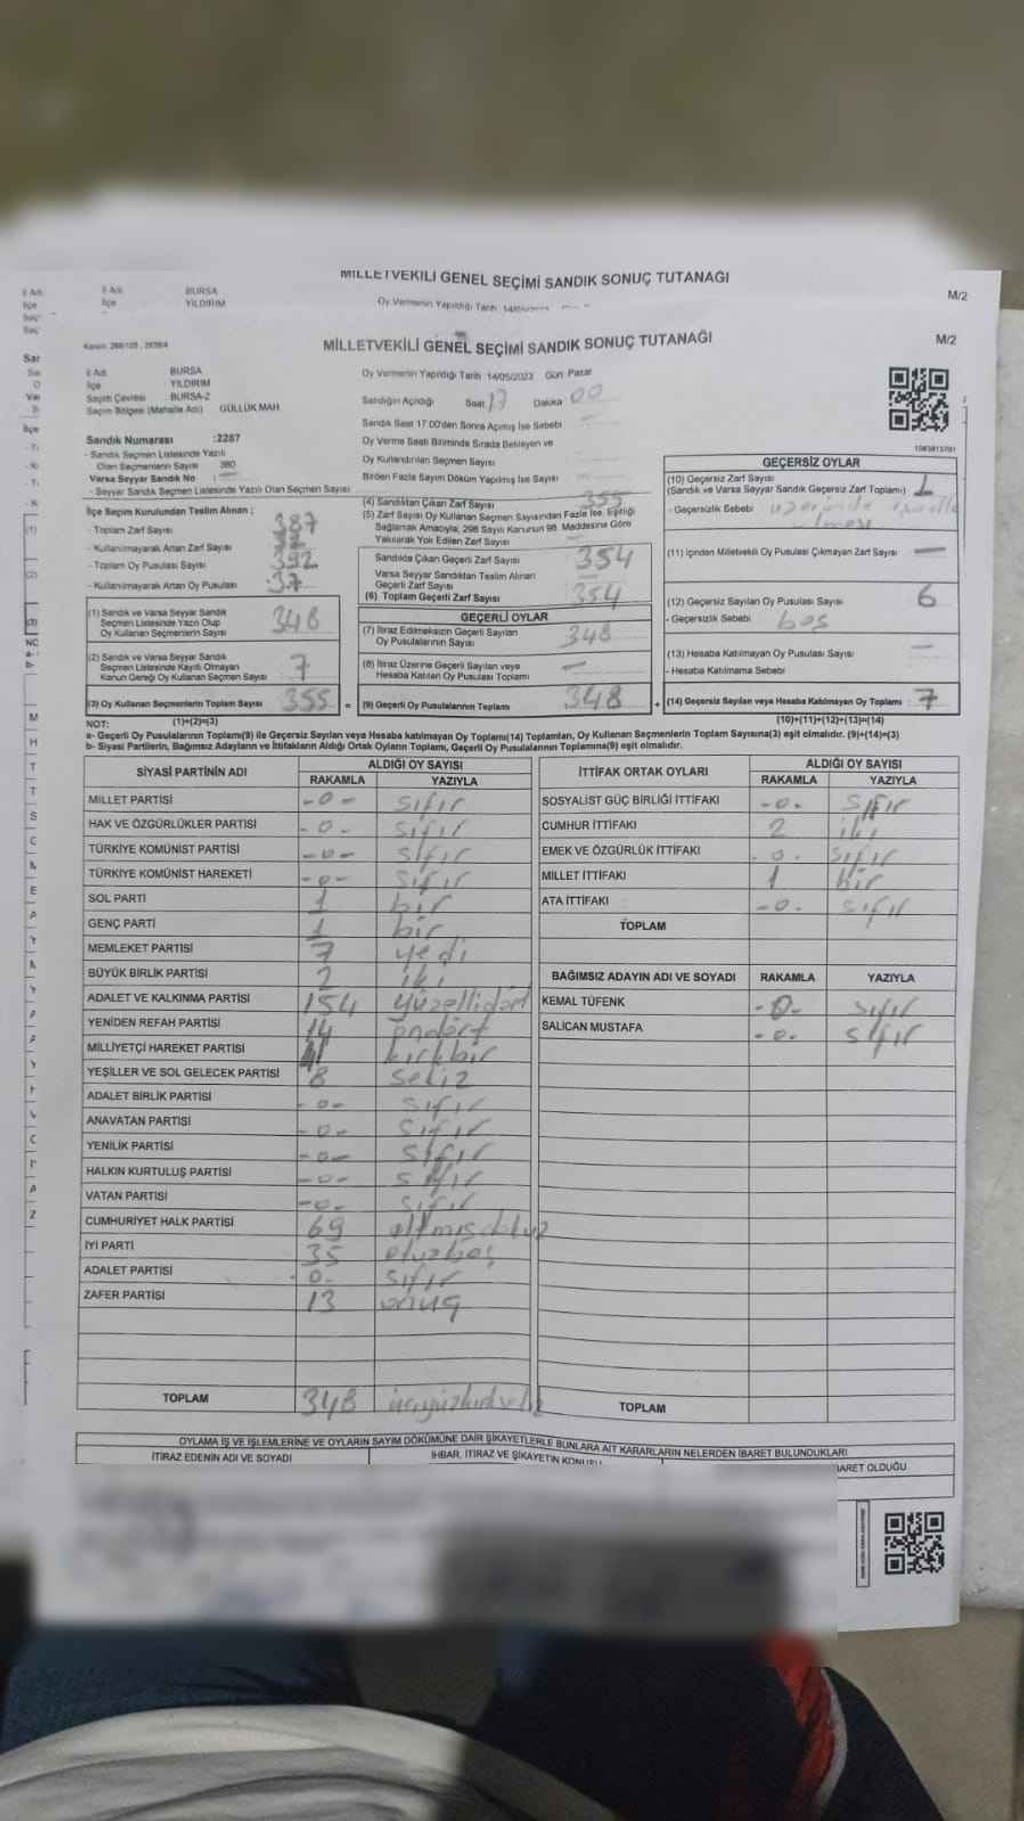 MİLLETVEKİLİ GENEL SEÇİMİ SANDIK SONUÇ TUTANAĞI
İl Adı BURSA
İlçe YILDIRIM
Oy Vermenin Yapıldığı Tarih
M/2
MİLLETVEKİLİ GENEL SEÇİMİ SANDIK SONUÇ TUTANAĞI
M/2
İl Adı BURSA
İlçe YILDIRIM
Seçim Çevresi BURSA-2
Seçim Bölgesi (Mahalle Adı) GÜLLÜK MAH.
Oy Vermenin Yapıldığı Tarih 14/05/2023 Gün Pazar
Sandığın Açıldığı Saat 17 Dakika 00
Sandık Saat 17:00'den Sonra Açılmış İse Sebebi
Oy Verme Saati Bitiminde Sırada Bekleyen ve
Oy Kullandırılan Seçmen Sayısı
Birden Fazla Sayım Döküm Yapılmış İse Sayısı
Sandık Numarası :2287
- Sandık Seçmen Listesinde Yazılı
Olan Seçmenlerin Sayısı 380
Varsa Seyyar Sandık No :
- Seyyar Sandık Seçmen Listesinde Yazılı Olan Seçmen Sayısı
İlçe Seçim Kurulundan Teslim Alınan :
- Toplam Zarf Sayısı : 387
- Kullanılmayarak Artan Zarf Sayısı
- Toplam Oy Pusulası Sayısı : 392
- Kullanılmayarak Artan Oy Pusulası : 37
(1) Sandık ve Varsa Seyyar Sandık
Seçmen Listesinde Yazılı Olup
Oy Kullanan Seçmenlerin Sayısı 348
(2) Sandık ve Varsa Seyyar Sandık
Seçmen Listesinde Kayıtlı Olmayan
Kanun Gereği Oy Kullanan Seçmen Sayısı 7
(3) Oy Kullanan Seçmenlerin Toplam Sayısı 355 =
(4) Sandıktan Çıkan Zarf Sayısı 355
(5) Zarf Sayısı Oy Kullanan Seçmen Sayısından Fazla İse, Eşitliği
Sağlamak Amacıyla, 298 Sayılı Kanunun 98. Maddesine Göre
Yakılarak Yok Edilen Zarf Sayısı
Sandıkta Çıkan Geçerli Zarf Sayısı 354
Varsa Seyyar Sandıktan Teslim Alınan
Geçerli Zarf Sayısı
(6) Toplam Geçerli Zarf Sayısı 354
GEÇERLİ OYLAR
(7) İtiraz Edilmeksizin Geçerli Sayılan
Oy Pusulalarının Sayısı 348
(8) İtiraz Üzerine Geçerli Sayılan veya
Hesaba Katılan Oy Pusulası Toplamı —
(9) Geçerli Oy Pusulalarının Toplamı 348 +
GEÇERSİZ OYLAR
(10) Geçersiz Zarf Sayısı
(Sandık ve Varsa Seyyar Sandık Geçersiz Zarf Toplamı) 1
- Geçersizlik Sebebi üzerinde
(11) İçinden Milletvekili Oy Pusulası Çıkmayan Zarf Sayısı —
(12) Geçersiz Sayılan Oy Pusulası Sayısı 6
- Geçersizlik Sebebi boş
(13) Hesaba Katılmayan Oy Pusulası Sayısı —
- Hesaba Katılmama Sebebi
(14) Geçersiz Sayılan veya Hesaba Katılmayan Oy Toplamı : 7
NOT: (1)+(2)=(3) (10)+(11)+(12)+(13)=(14)
a- Geçerli Oy Pusulalarının Toplamı(9) ile Geçersiz Sayılan veya Hesaba katılmayan Oy Toplamı(14) Toplamları, Oy Kullanan Seçmenlerin Toplam Sayısına(3) eşit olmalıdır. (9)+(14)=(3)
b- Siyasi Partilerin, Bağımsız Adayların ve İttifakların Aldığı Ortak Oyların Toplamı, Geçerli Oy Pusulalarının Toplamına(9) eşit olmalıdır.
SİYASİ PARTİNİN ADI ALDIĞI OY SAYISI
RAKAMLA YAZIYLA
MİLLET PARTİSİ -0- sıfır
HAK VE ÖZGÜRLÜKLER PARTİSİ -0- sıfır
TÜRKİYE KOMÜNİST PARTİSİ -0- sıfır
TÜRKİYE KOMÜNİST HAREKETİ -0- sıfır
SOL PARTİ 1 bir
GENÇ PARTİ 1 bir
MEMLEKET PARTİSİ 7 yedi
BÜYÜK BİRLİK PARTİSİ 2 iki
ADALET VE KALKINMA PARTİSİ 154 yüzellidört
YENİDEN REFAH PARTİSİ 14 ondört
MİLLİYETÇİ HAREKET PARTİSİ 41 kırkbir
YEŞİLLER VE SOL GELECEK PARTİSİ 8 sekiz
ADALET BİRLİK PARTİSİ -0- sıfır
ANAVATAN PARTİSİ -0- sıfır
YENİLİK PARTİSİ -0- sıfır
HALKIN KURTULUŞ PARTİSİ -0- sıfır
VATAN PARTİSİ -0- sıfır
CUMHURİYET HALK PARTİSİ 69 altmışdokuz
İYİ PARTİ 35 otuzbeş
ADALET PARTİSİ -0- sıfır
ZAFER PARTİSİ 13 onüç
TOPLAM 348 üçyüzkırksekiz
İTTİFAK ORTAK OYLARI ALDIĞI OY SAYISI
RAKAMLA YAZIYLA
SOSYALİST GÜÇ BİRLİĞİ İTTİFAKI -0- sıfır
CUMHUR İTTİFAKI 2 iki
EMEK VE ÖZGÜRLÜK İTTİFAKI -0- sıfır
MİLLET İTTİFAKI 1 bir
ATA İTTİFAKI -0- sıfır
TOPLAM
BAĞIMSIZ ADAYIN ADI VE SOYADI RAKAMLA YAZIYLA
KEMAL TÜFENK -0- sıfır
SALİCAN MUSTAFA -0- sıfır
TOPLAM
OYLAMA İŞ VE İŞLEMLERİNE VE OYLARIN SAYIM DÖKÜMÜNE DAİR ŞİKAYETLERLE BUNLARA AİT KARARLARIN NELERDEN İBARET BULUNDUKLARI
İTİRAZ EDENİN ADI VE SOYADI İHBAR, İTİRAZ VE ŞİKAYETİN KONUSU